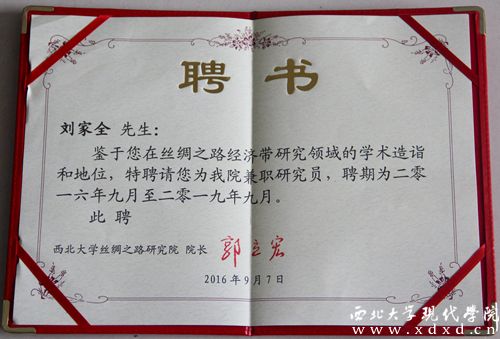 聘书
刘家全 先生：
鉴于您在丝绸之路经济带研究领域的学术造诣
和地位，特聘请您为我院兼职研究员，聘期为二零
一六年九月至二零一九年九月。
此聘
西北大学丝绸之路研究院 院长 郭立宏
2016年9月7日
西北大学现代学院
www.xdxd.cn